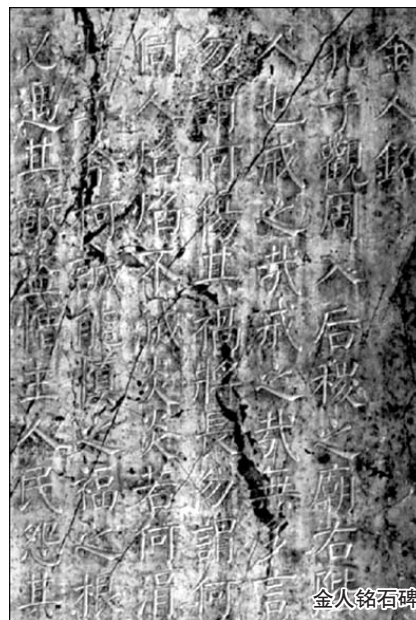 金人銘
孔子觀周入后稷之廟右階
人也戒之哉戒之哉無多言
勿謂何傷其禍將長勿謂何
伺人焰焰不滅炎炎若何涓
尋斧柯誠能慎之福之根
必遇其敵盜憎主人民怨其
金人铭石碑